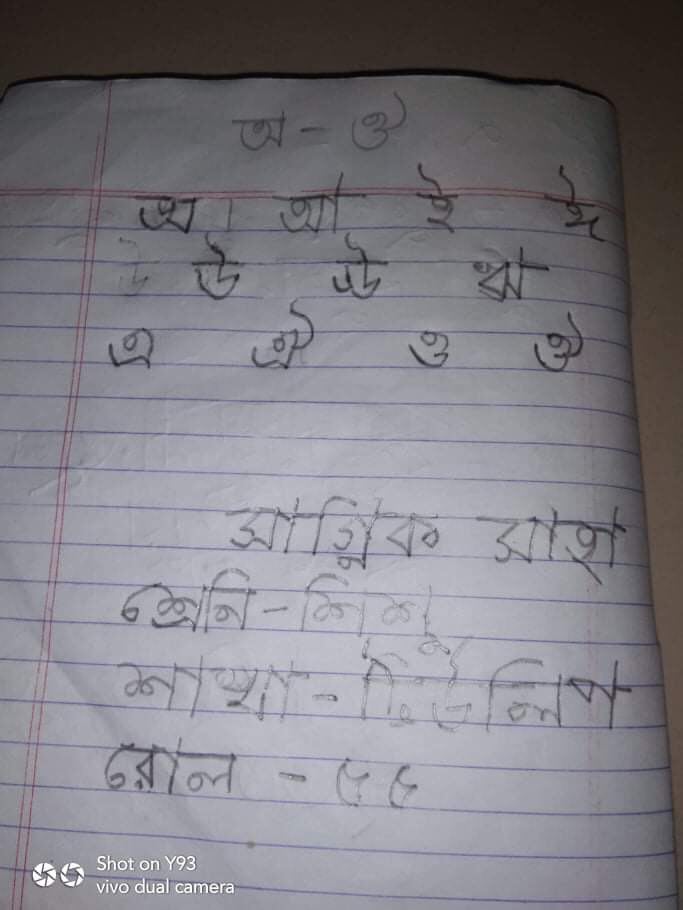 অ - ঔ
অ আ ই ঈ
উ ঊ ঋ
এ ঐ ও ঔ
সাগ্নিক সাহা
শ্রেনি - শিশু
শাখা - টিউলিপ
রোল - ৫৫
Shot on Y93
vivo dual camera